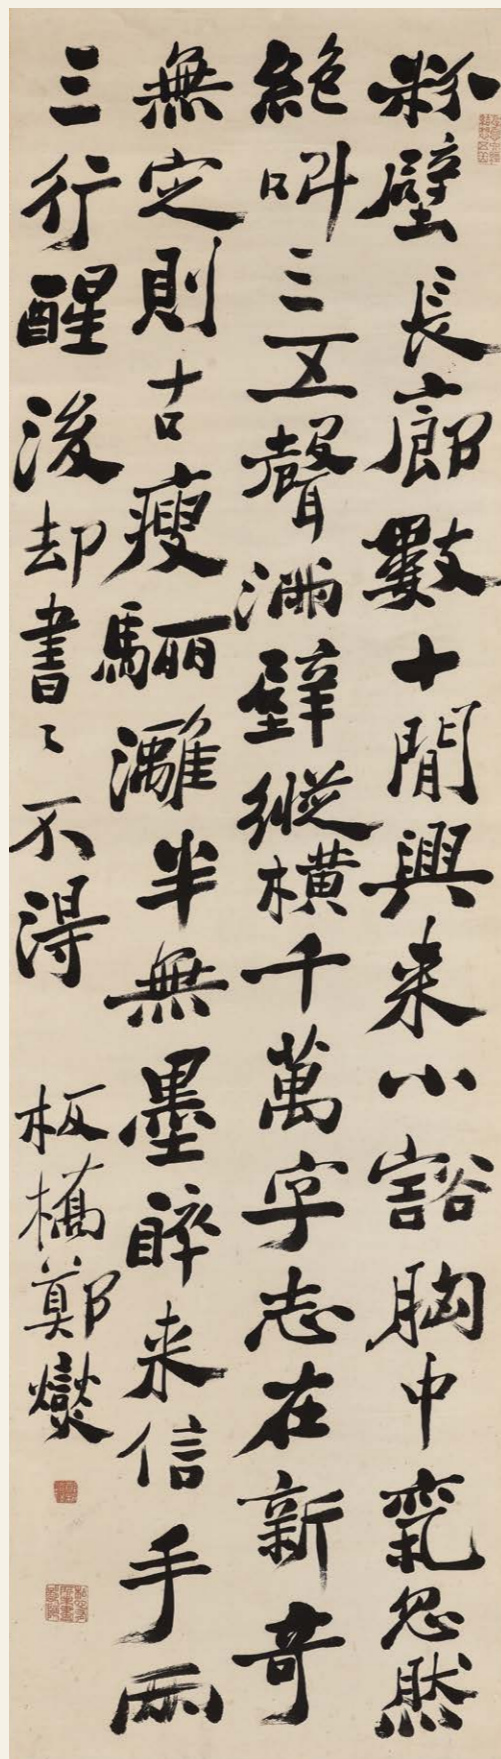 粉壁長廊數十間興來小豁胸中氣忽然
絶叫三五聲滿壁縱横千萬字志在新奇
無定則古瘦驪灕半無墨醉来信手兩
三行醒後却書〻不得
板橋鄭燮